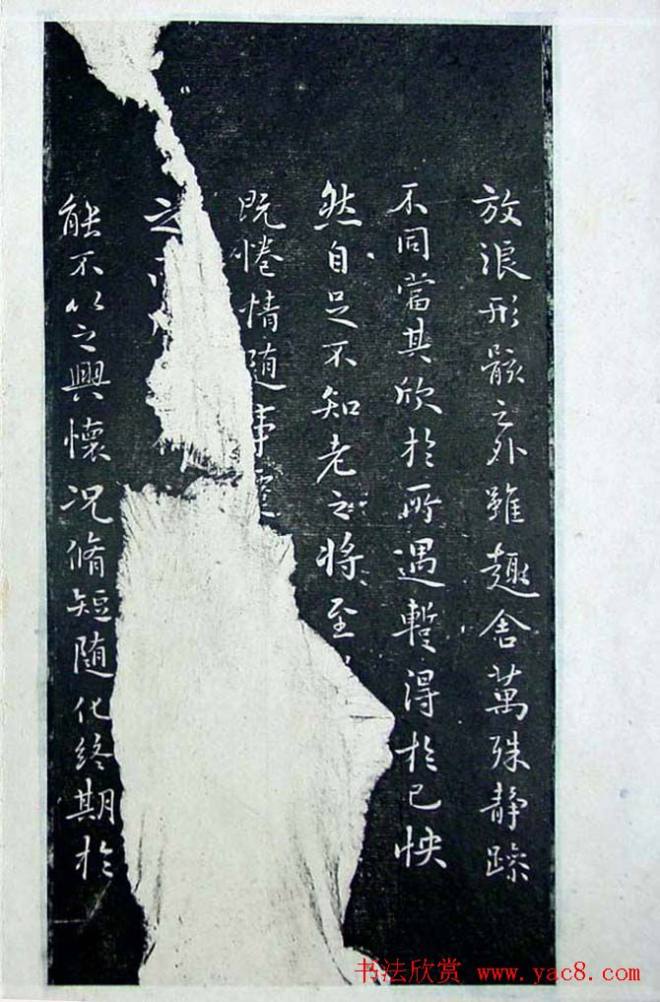 放浪形骸之外雖趣舍萬殊靜躁
不同當其欣於所遇蹔得於己怏
然自足不知老之將至
既惓情随事遷
之
能不以之興懷況脩短随化終期於
书法欣赏 www.yac8.com